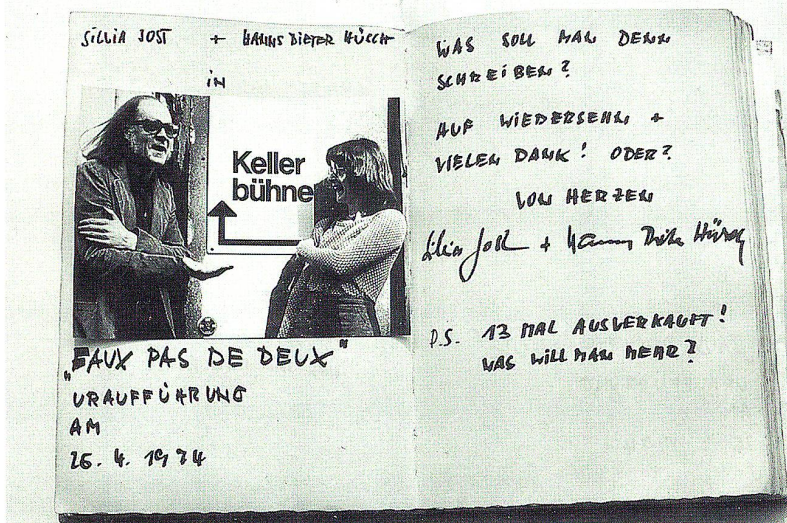 SILVIA JOST + HANNS DIETER HÜSCH
in
Keller
bühne
„FAUX PAS DE DEUX"
URAUFFÜHRUNG
AM
26. 4. 1974
WAS SOLL MAN DENN
SCHREIBEN?
AUF WIEDERSEHN +
VIELEN DANK! ODER?
VON HERZEN
Silvia Jost + Hanns Dieter Hüsch
P.S. 13 MAL AUSVERKAUFT!
WAS WILL MAN MEHR?